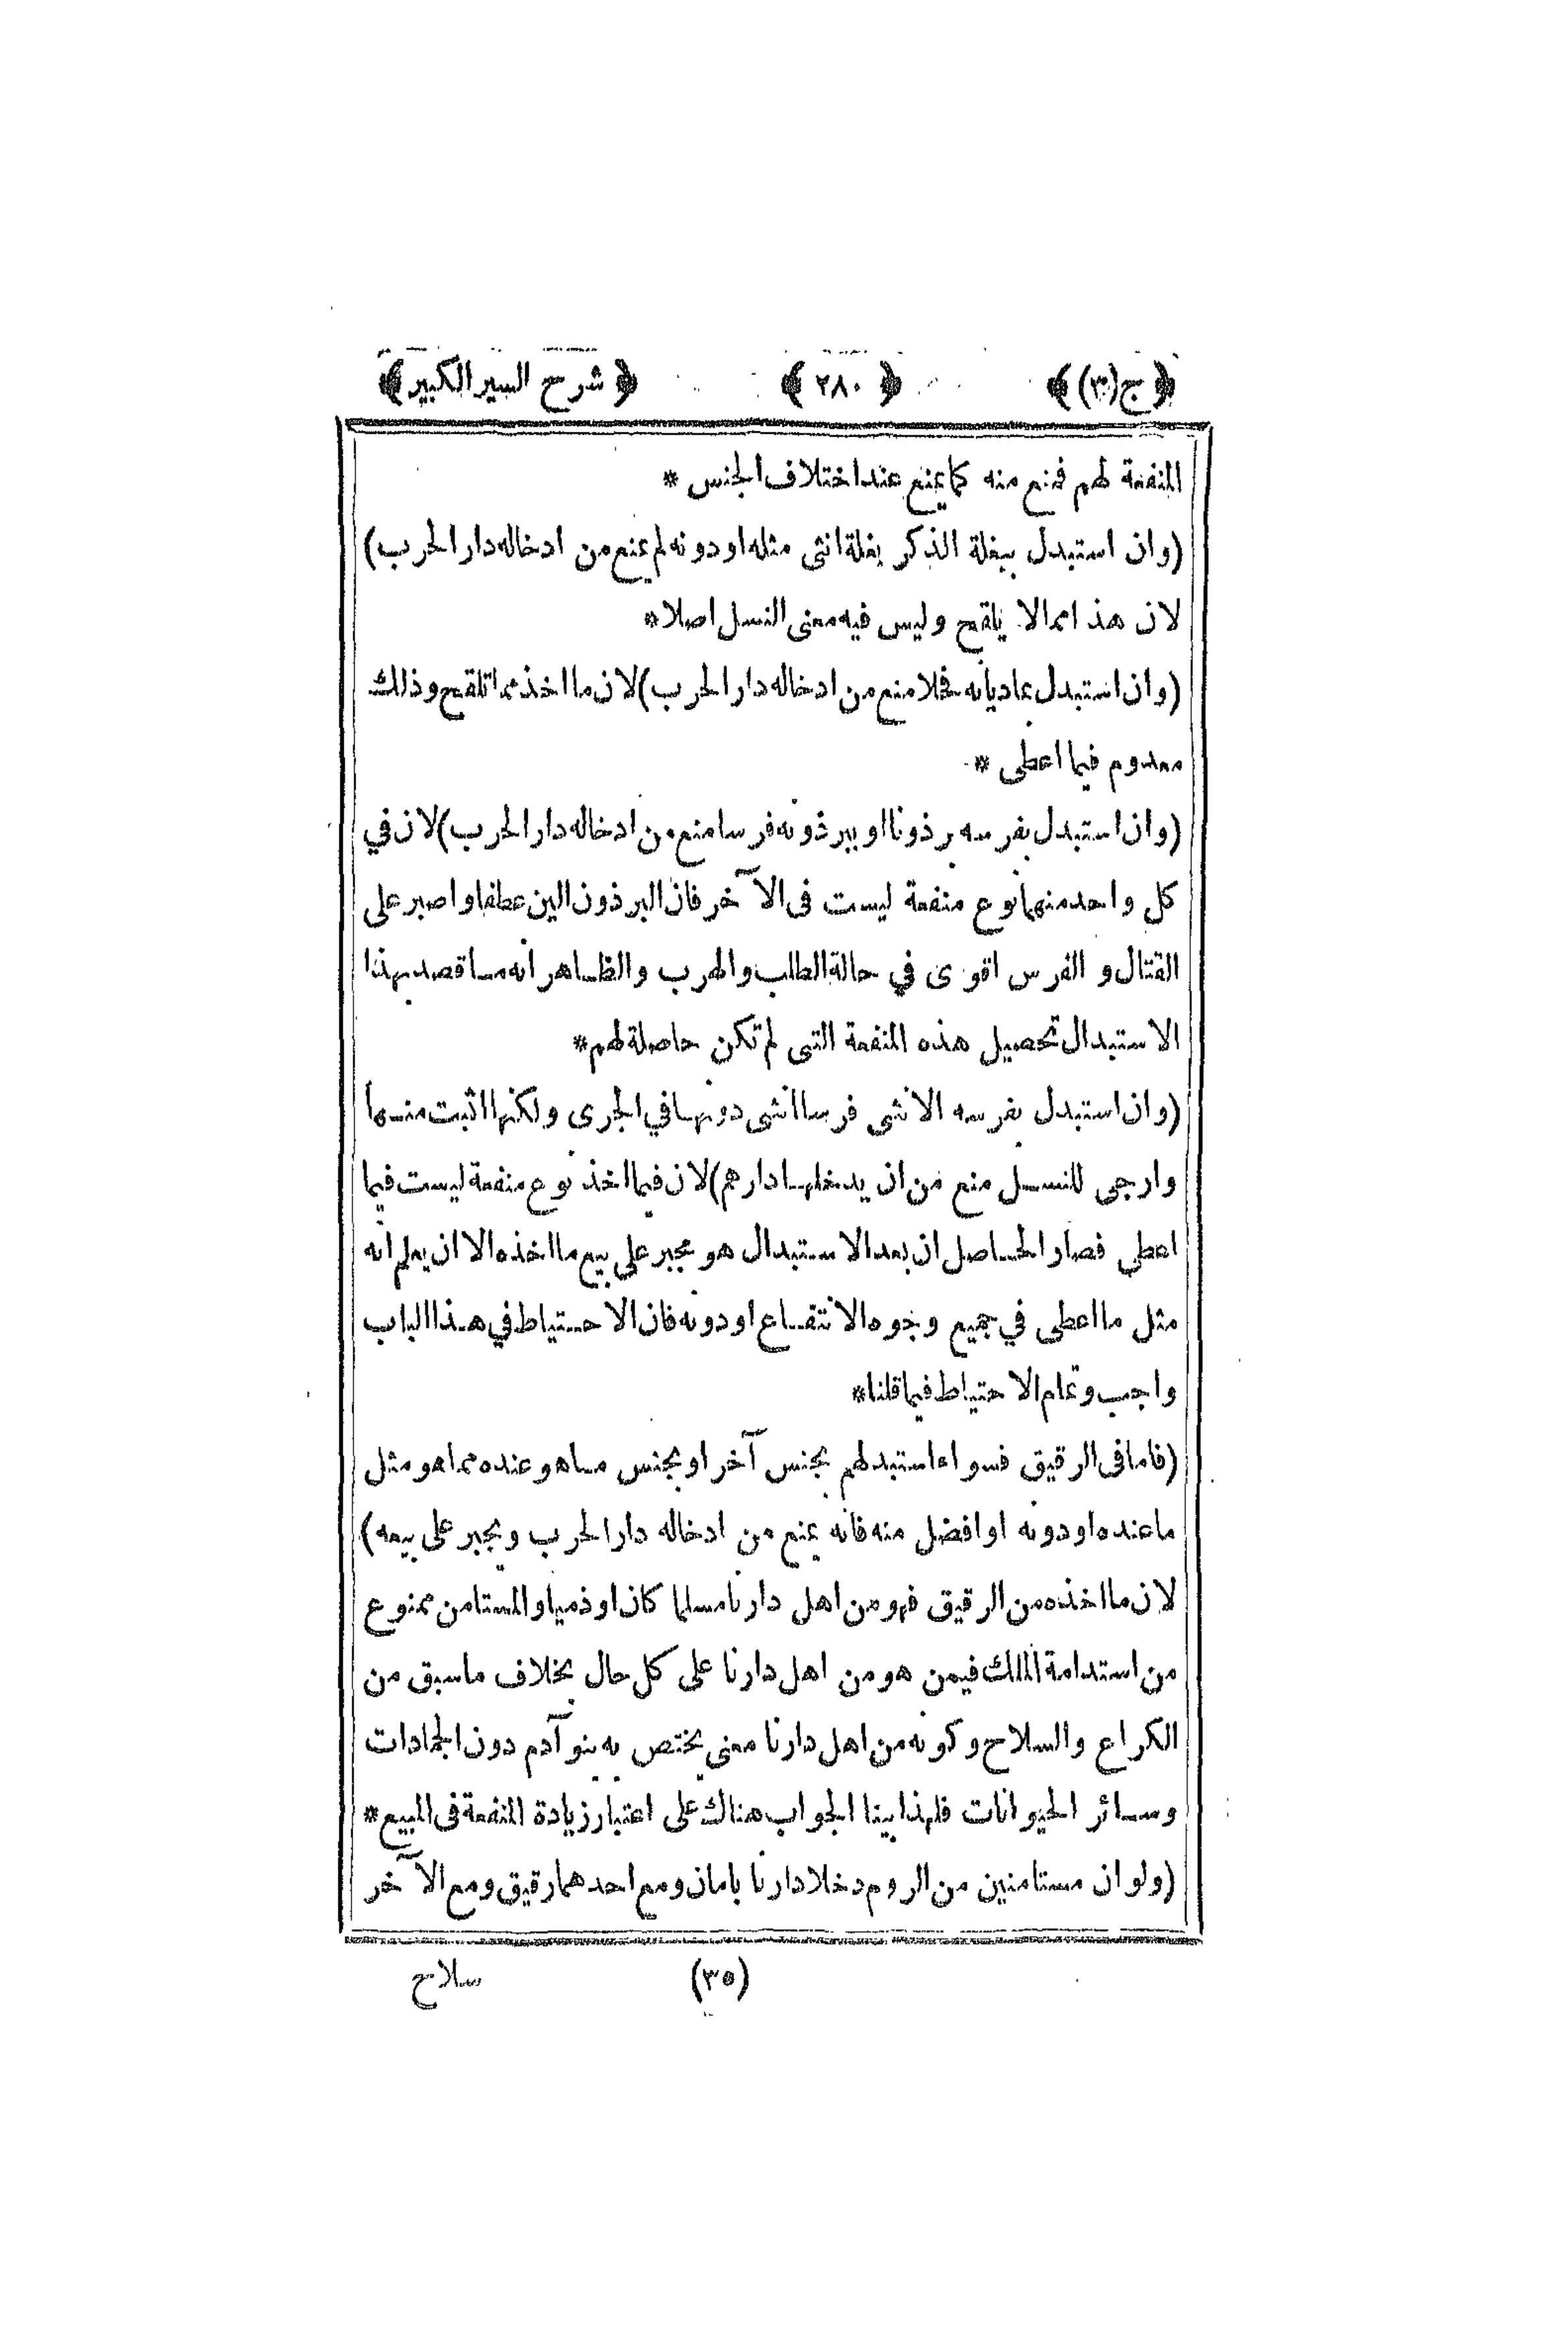 ﴿ج(٣)﴾ ﴿٢٨٠﴾ ﴿شرح السير الكبير﴾
المنفعة لهم فمنع منه كما يمنع عند اختلاف الجنس *
(وان استبدل ببغلة الذكر بغلة انثى مثله او دونه لم يمنع من ادخاله دار الحرب)
لان هذا مما لا يلقح وليس فيه معنى النسل اصلا *
(وان استبدل بماديانه فحلا منع من ادخاله دار الحرب) لان ما اخذ مما تلقح وذلك
معدوم فيما اعطى *
(وان استبدل بفرسه برذونا او ببرذونه فرسا منع من ادخاله دار الحرب) لان في
كل واحد منهما نوع منفعة ليست فى الآخر فان البرذون الين عطفا واصبر على
القتال و الفرس اقوى في حالة الطلب والهرب والظاهر انه ما قصد بهذا
الاستبدال تحصيل هذه المنفعة التى لم تكن حاصلة لهم *
(وان استبدل بفرسه الانثى فرسا انثى دونها في الجرى ولكنها اثبت منها
وارجى للنسل منع من ان يدخلها دارهم) لان فيما اخذ نوع منفعة ليست فيما
اعطى فصار الحاصل ان بعد الاستبدال هو مجبر على بيع ما اخذه الا ان يعلم انه
مثل ما اعطى في جميع وجوه الانتفاع او دونه فان الاحتياط في هذا الباب
واجب وتمام الاحتياط فيما قلنا *
(فاما فى الرقيق فسواء استبدلهم بجنس آخر او بجنس ما هو عنده مما هو مثل
ما عنده او دونه او افضل منه فانه يمنع من ادخاله دار الحرب ويجبر على بيعه)
لان ما اخذه من الرقيق فهو من اهل دارنا مسلما كان او ذميا والمستامن ممنوع
من استدامة الملك فيمن هو من اهل دارنا على كل حال بخلاف ما سبق من
الكراع والسلاح وكونه من اهل دارنا معنى يختص به بنو آدم دون الجمادات
وسائر الحيوانات فلهذا بينا الجواب هناك على اعتبار زيادة المنفعة فى المبيع *
(ولو ان مستامنين من الروم دخلا دارنا بامان ومع احدهما رقيق ومع الآخر
(٣٥) سلاح